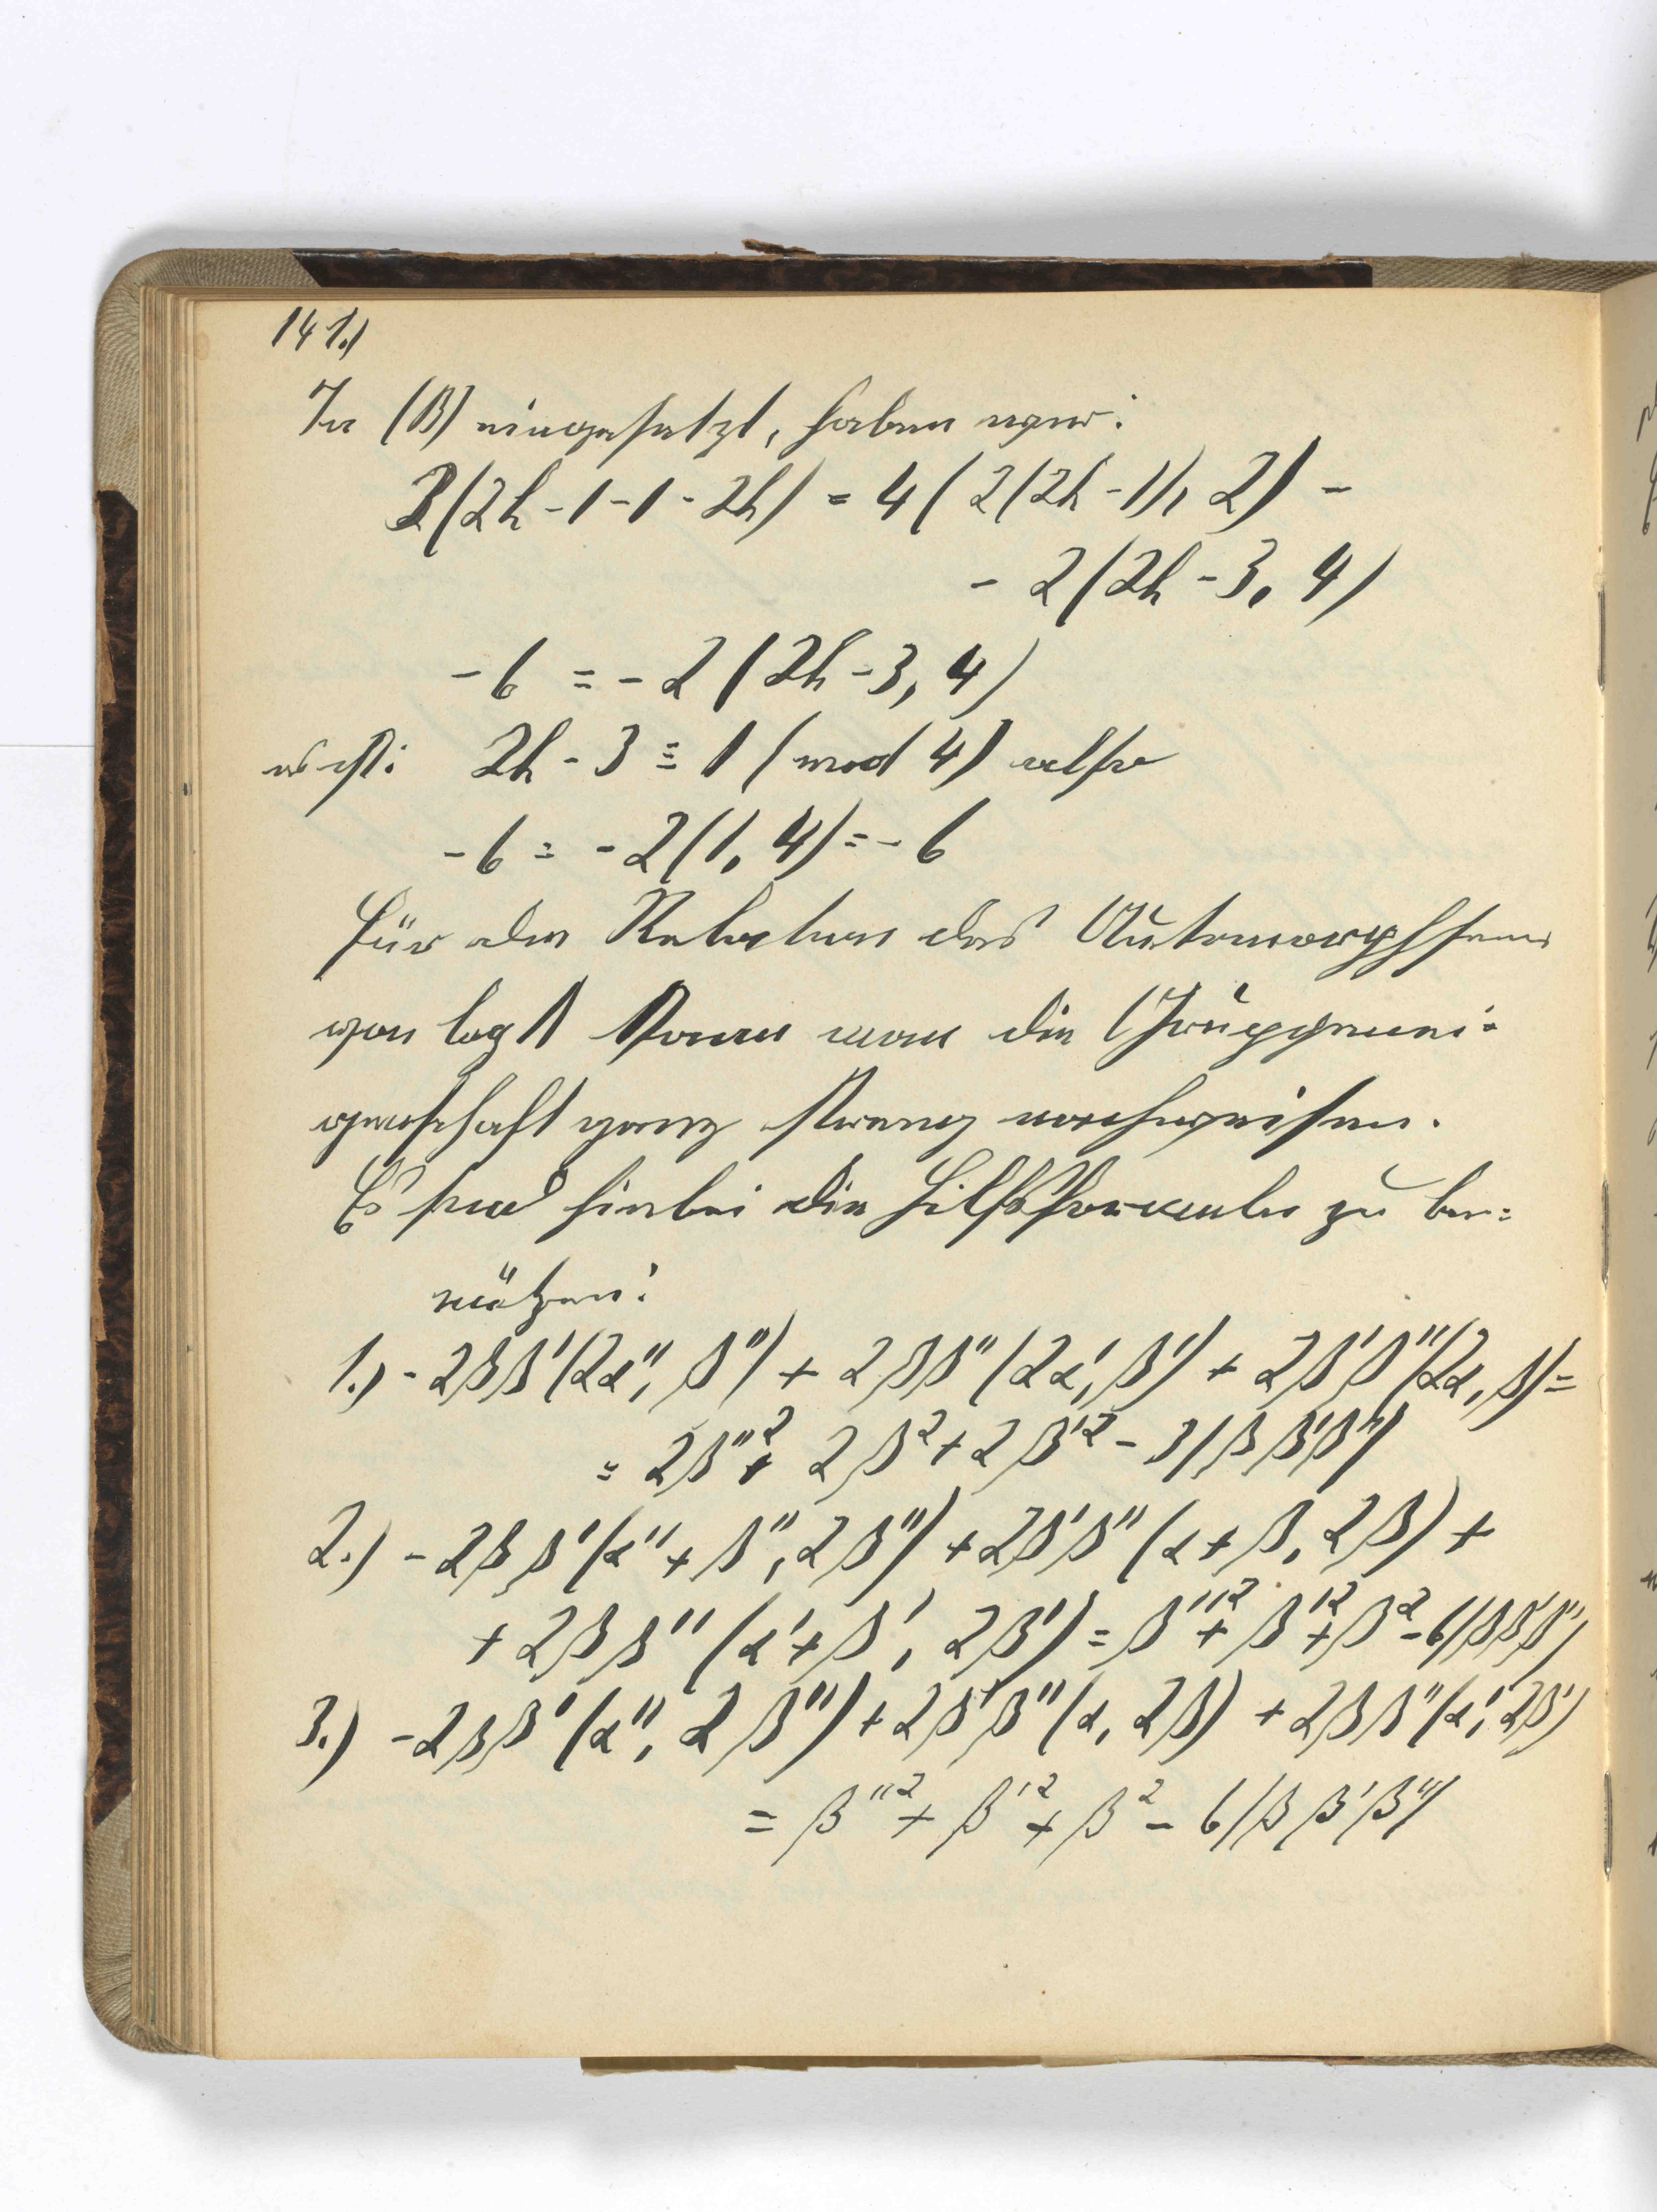 141.)
In (B) eingesetzt, haben wir:
3(2h-1-1-2h) = 4(2(2h-1), 2) -
- 2(2h-3, 4)
-6 = -2(2h-3, 4)
es ist: 2h-3 ≡ 1 (mod 4) also
-6 = -2(1, 4) = -6
Für den das Automorphsein
von log kann man die Gruppenei-
genschaft ganz streng nachweisen.
Es sind hierbei die Hilfsformeln zu be-
nützen:
1.) -2ββ'(2α'', β'') + 2ββ''(2α', β') + 2β'β''(2α, β) =
= 2β''² + 2β² + 2β'² - 3|ββ'β''|
2.) -2ββ'(α''+β'', 2β'') + 2β'β''(α+β, 2β) +
+ 2ββ''(α'+β', 2β') = β''² + β'² + β² - 6|ββ'β''|
3.) -2ββ'(α'', 2β'') + 2β'β''(α, 2β) + 2ββ''(α', 2β')
= β''² + β'² + β² - 6|ββ'β''|